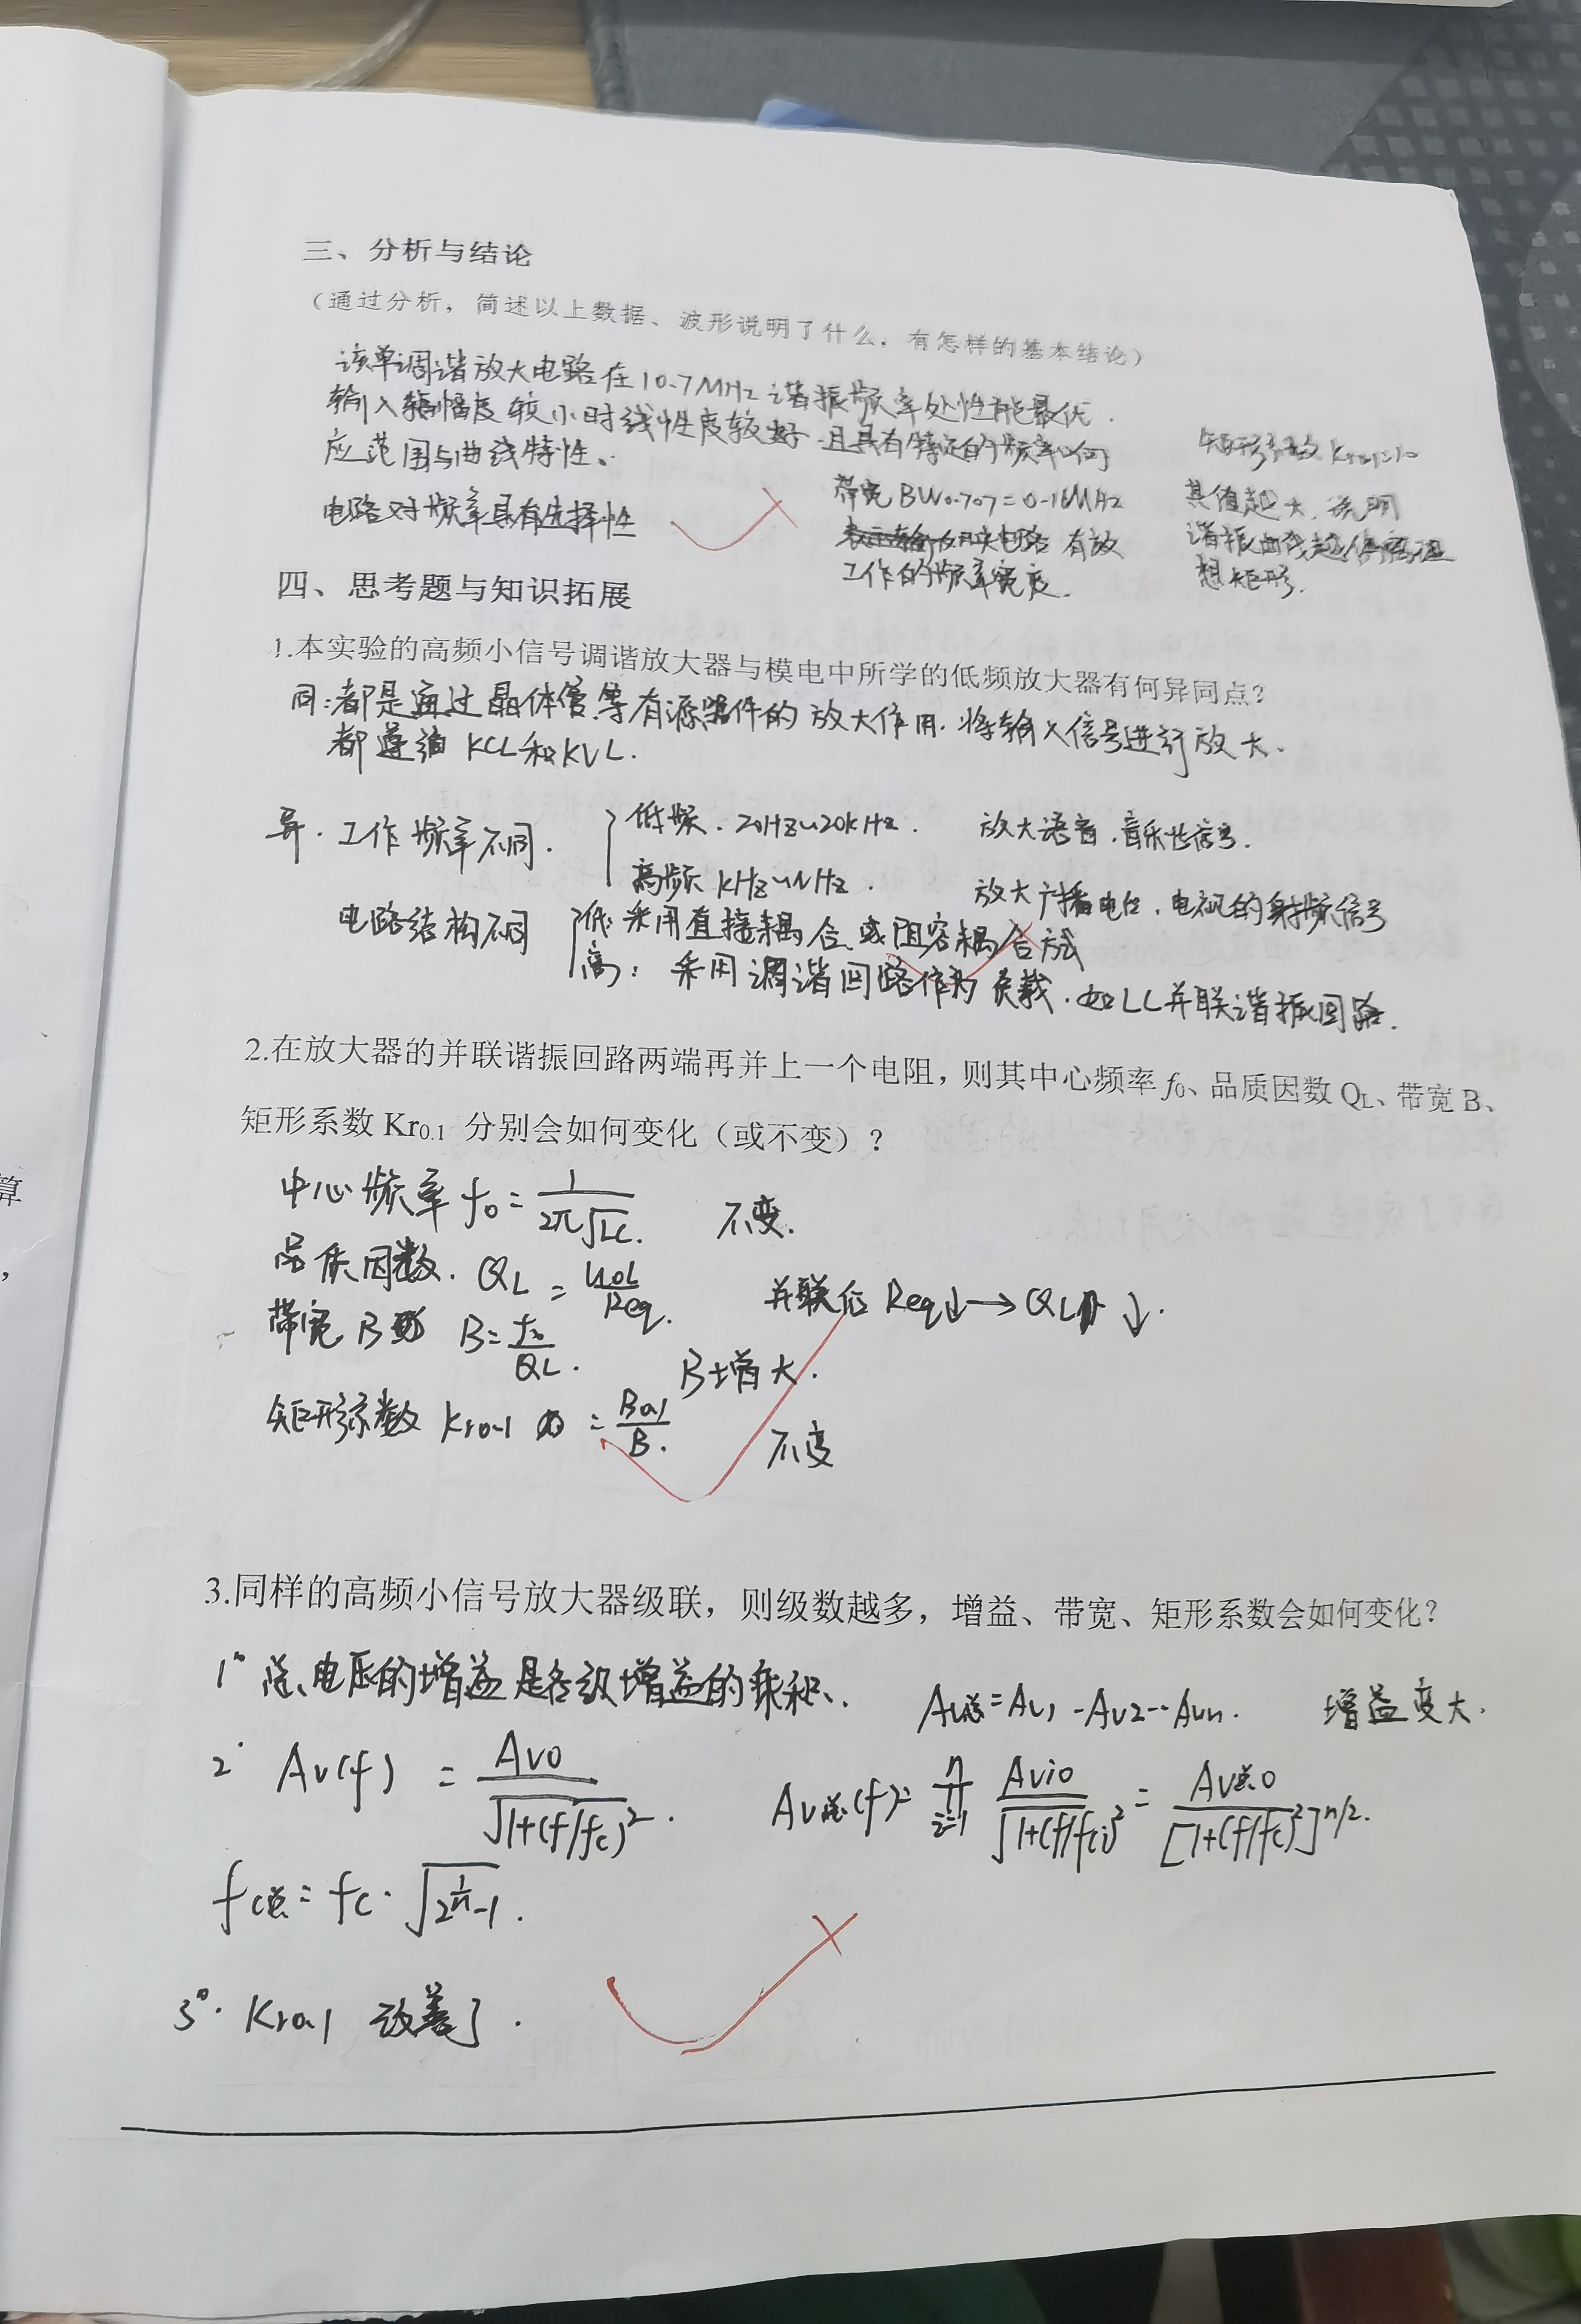 三、分析与结论
（通过分析，简述以上数据、波形说明了什么，有怎样的基本结论）
该单调谐放大电路在10.7MHz谐振频率处性能最优.
输入幅度较小时线性度较好.且具有特定的频率响
应范围与曲线特性、
电路对频率具有选择性
带宽BW0.707=0.16MHz
有效
工作的频率宽度.
矩形系数
其值越大,说明
谐振曲线越 理
想矩形.
四、思考题与知识拓展
1.本实验的高频小信号调谐放大器与模电中所学的低频放大器有何异同点？
同:都是通过晶体管等有源器件的放大作用.将输入信号进行放大.
都遵循KCL和KVL.
异.工作频率不同.
低频.20Hz~20kHz. 放大语音.音乐性信号.
高频kHz~MHz. 放大广播电台,电视的射频信号
电路结构不同
低:采用直接耦合或阻容耦合方式
高:采用调谐回路作为负载.如LC并联谐振回路.
2.在放大器的并联谐振回路两端再并上一个电阻，则其中心频率f0、品质因数QL、带宽B、
矩形系数Kr0.1 分别会如何变化（或不变）？
中心频率f0=1/(2π√LC). 不变.
品质因数.QL=ω0L/Req. 并联后Req↓→QL↓.
带宽B B=f0/QL. B增大.
矩形系数Kr0.1=B0.1/B. 不变
3.同样的高频小信号放大器级联，则级数越多，增益、带宽、矩形系数会如何变化？
1°总电压的增益是各级增益的乘积、. Av总=Av1·Av2…Avn. 增益变大.
2° Av(f)=Av0/√(1+(f/fc)²). Av总(f)=∏(i=1→n) Avi0/√(1+(f/fci)²)=Av总0/[1+(f/fc)²]^(n/2).
fc总=fc·√(2^(1/n)-1).
3°.Kr0.1 改善了.
算
，